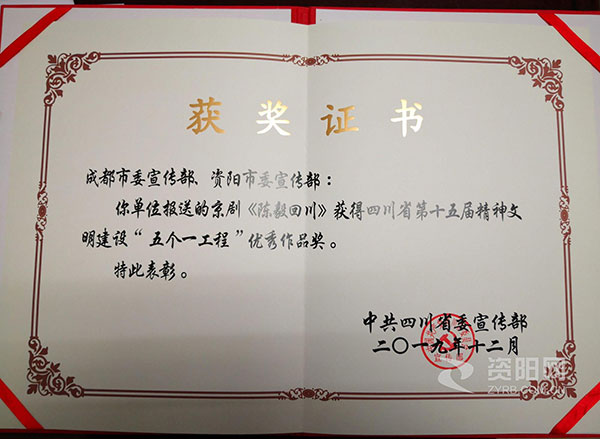 获奖证书
成都市委宣传部、资阳市委宣传部：
你单位报送的京剧《陈毅回川》获得四川省第十五届精神文
明建设“五个一工程”优秀作品奖。
特此表彰。
中共四川省委宣传部
二〇一九年十二月
资阳网
ZYRB.COM.CN